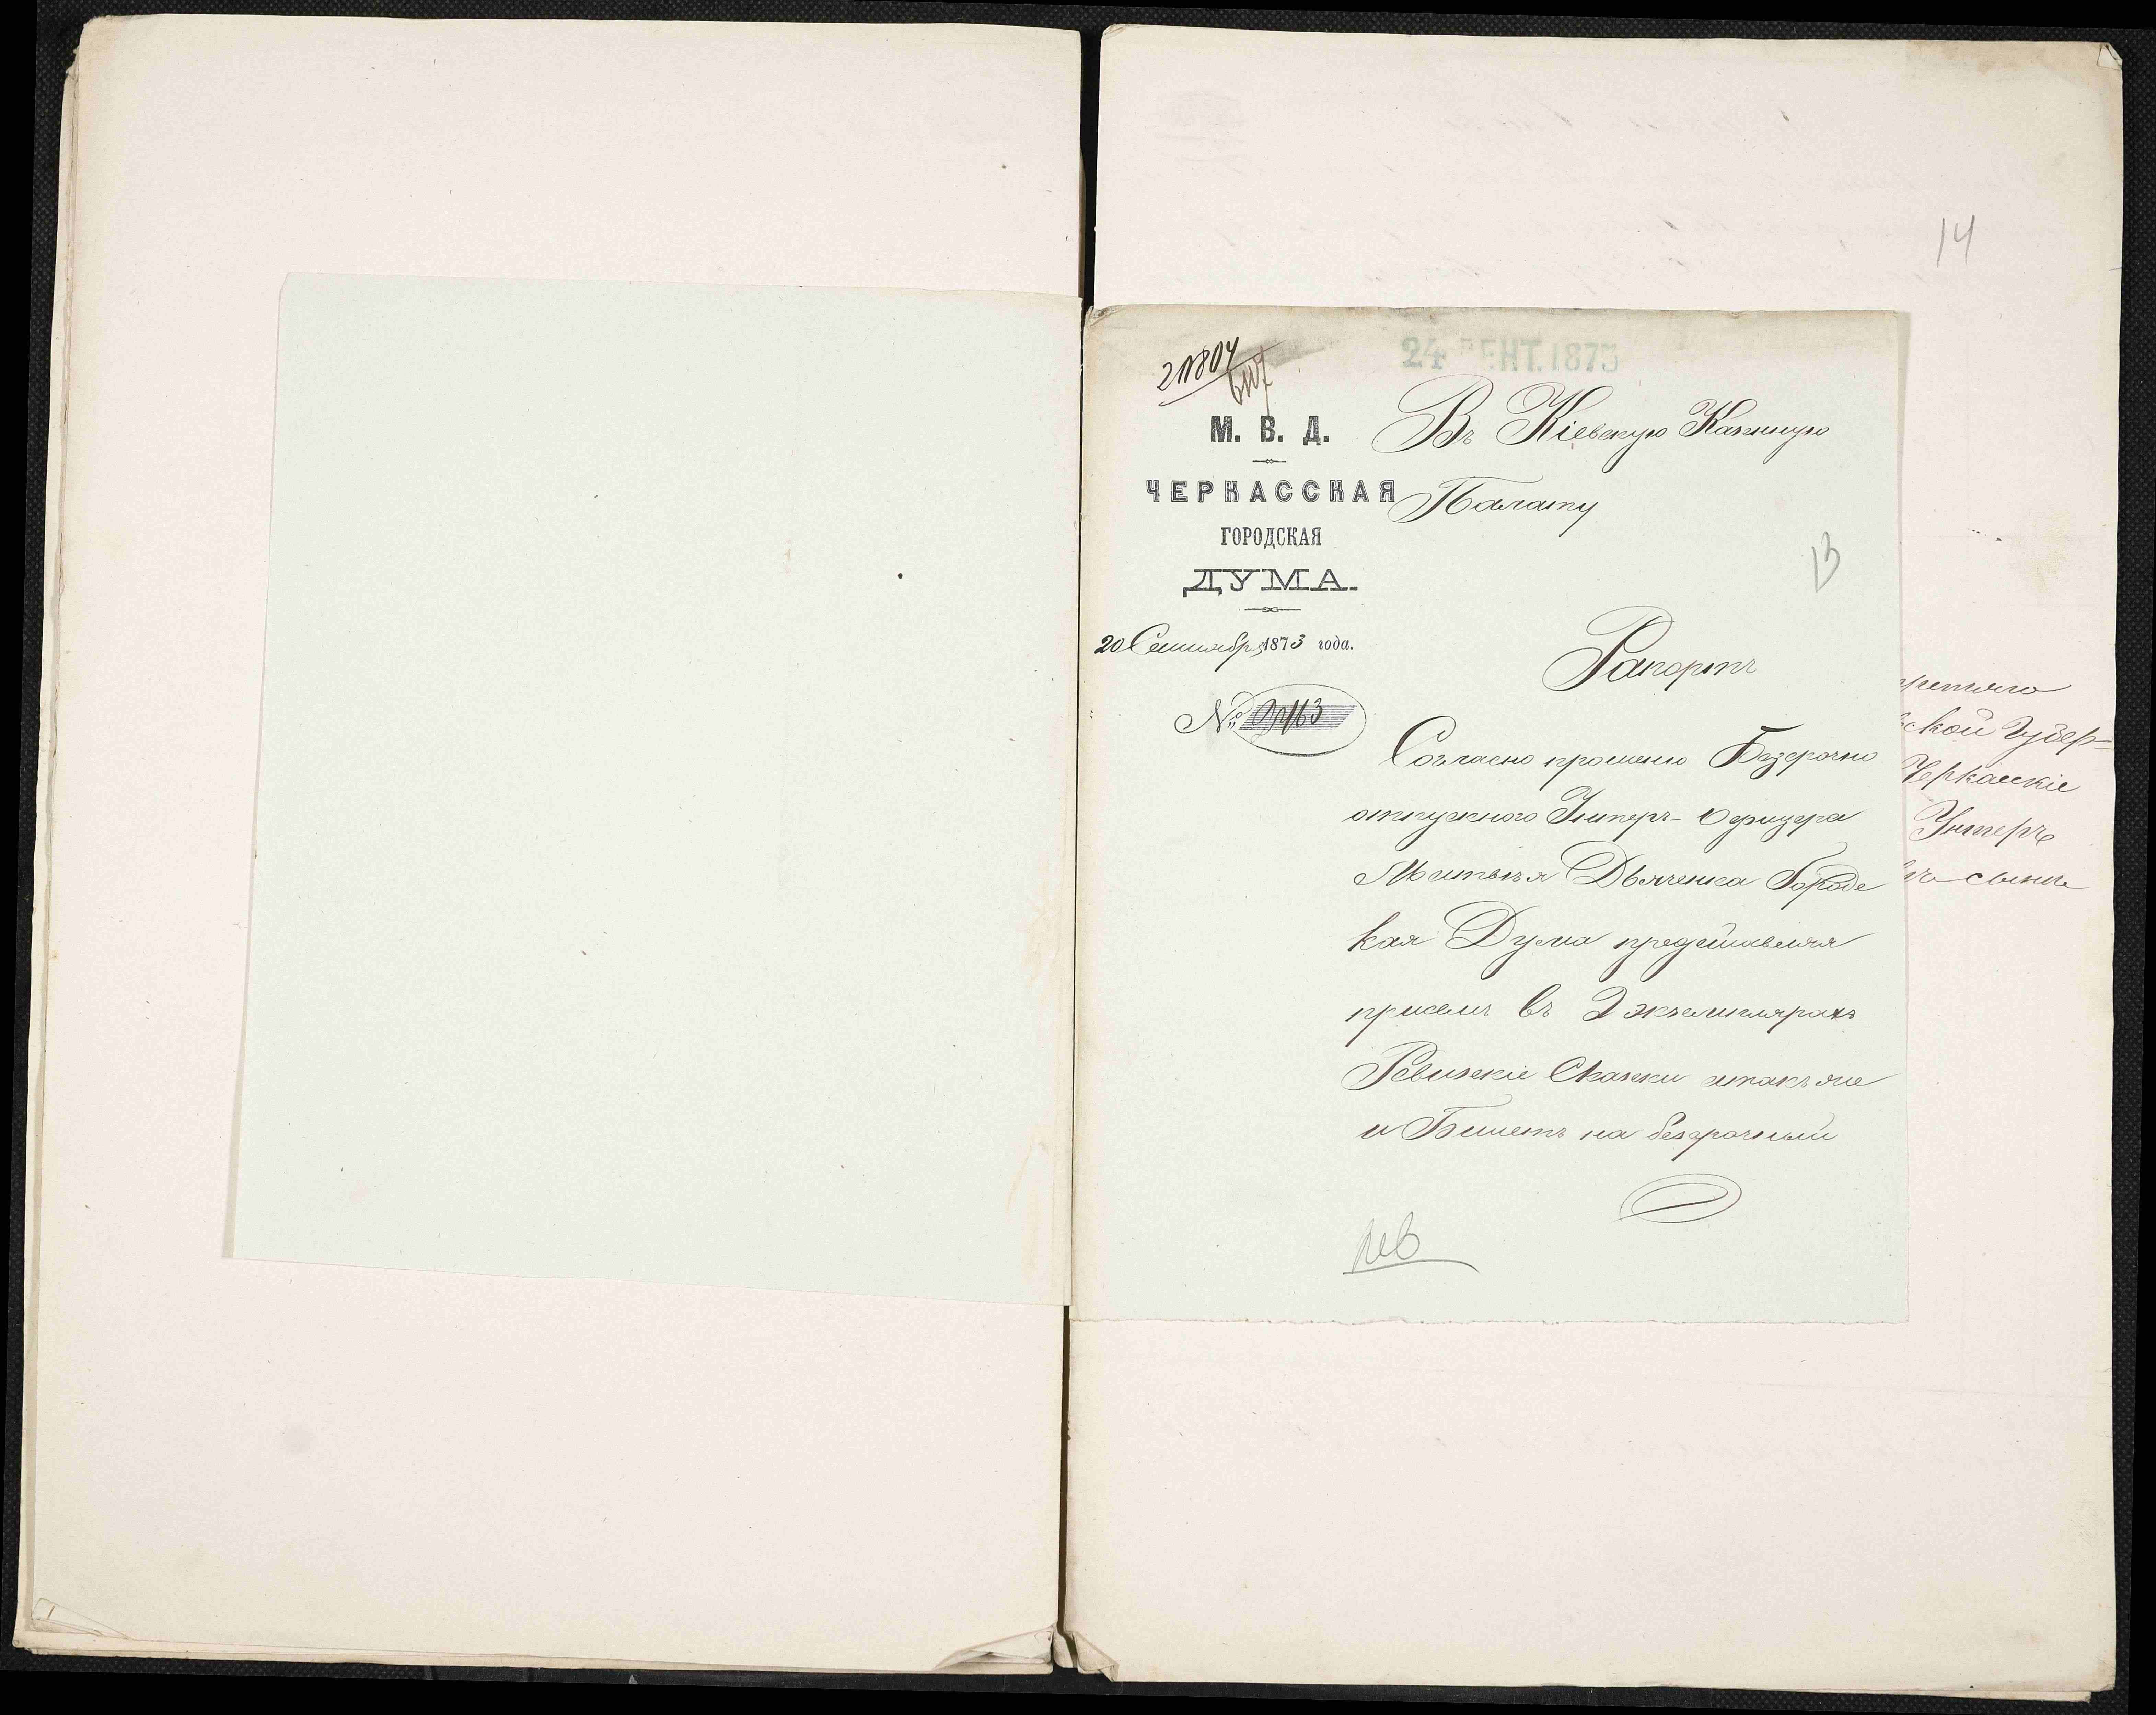 14
24 СЕНТ. 1873
21804
М. В. Д.
ЧЕРКАССКАЯ
ГОРОДСКАЯ
ДУМА.
20 Сентября 1873 года.
№ 3463
Въ Кіевскую Казенную
Палату
13
Рапортъ
Согласно прошенію Безсрочно
отпускного Унтеръ-Офицера
Матвѣя Дьяченка Городс
кая Дума представляя
присемъ въ 2 экземплярахъ
Ревизскіе Сказки атакъ же
и Билетъ на безсрочный
рев
ской Губер=
Черкасскіе
Унтеръ
сынъ